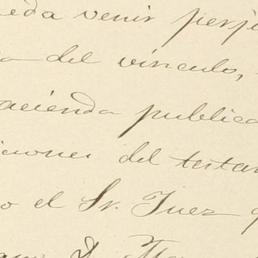 eda venir perj
a del vínculo,
acienda publica
ciones del testa
o el Sr. Juez q
D.